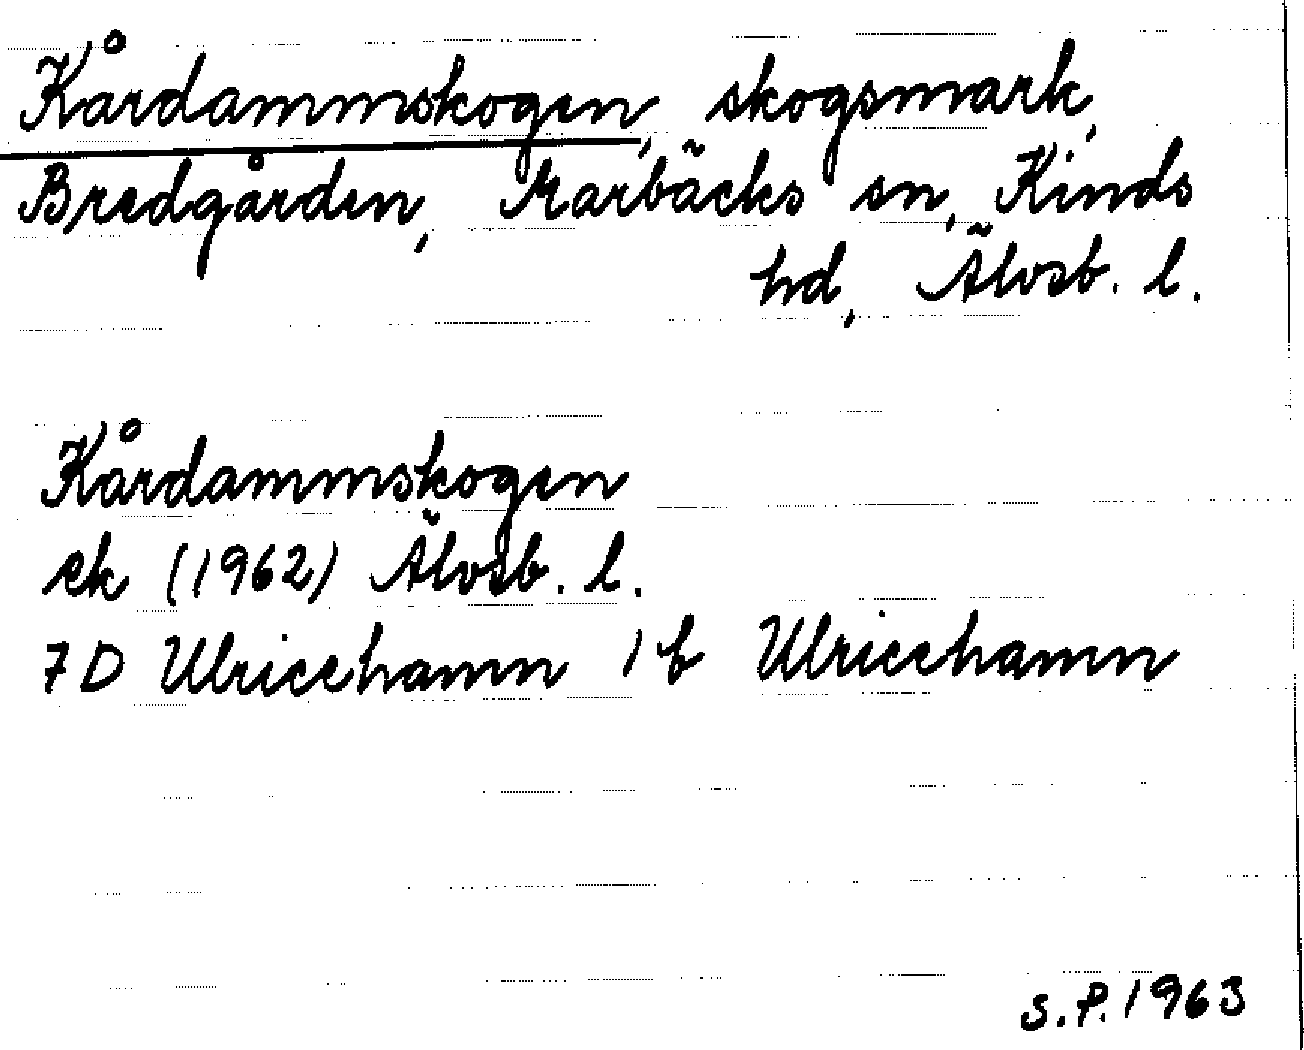 Kårdammskogen, skogsmark,
Bredgården, Marbäcks sn, Kinds
hd, Älvsb. l.
Kårdammskogen
ek (1962) Älvsb. l.
7D Ulricehamn 1 b Ulricehamn
S.P. 1963